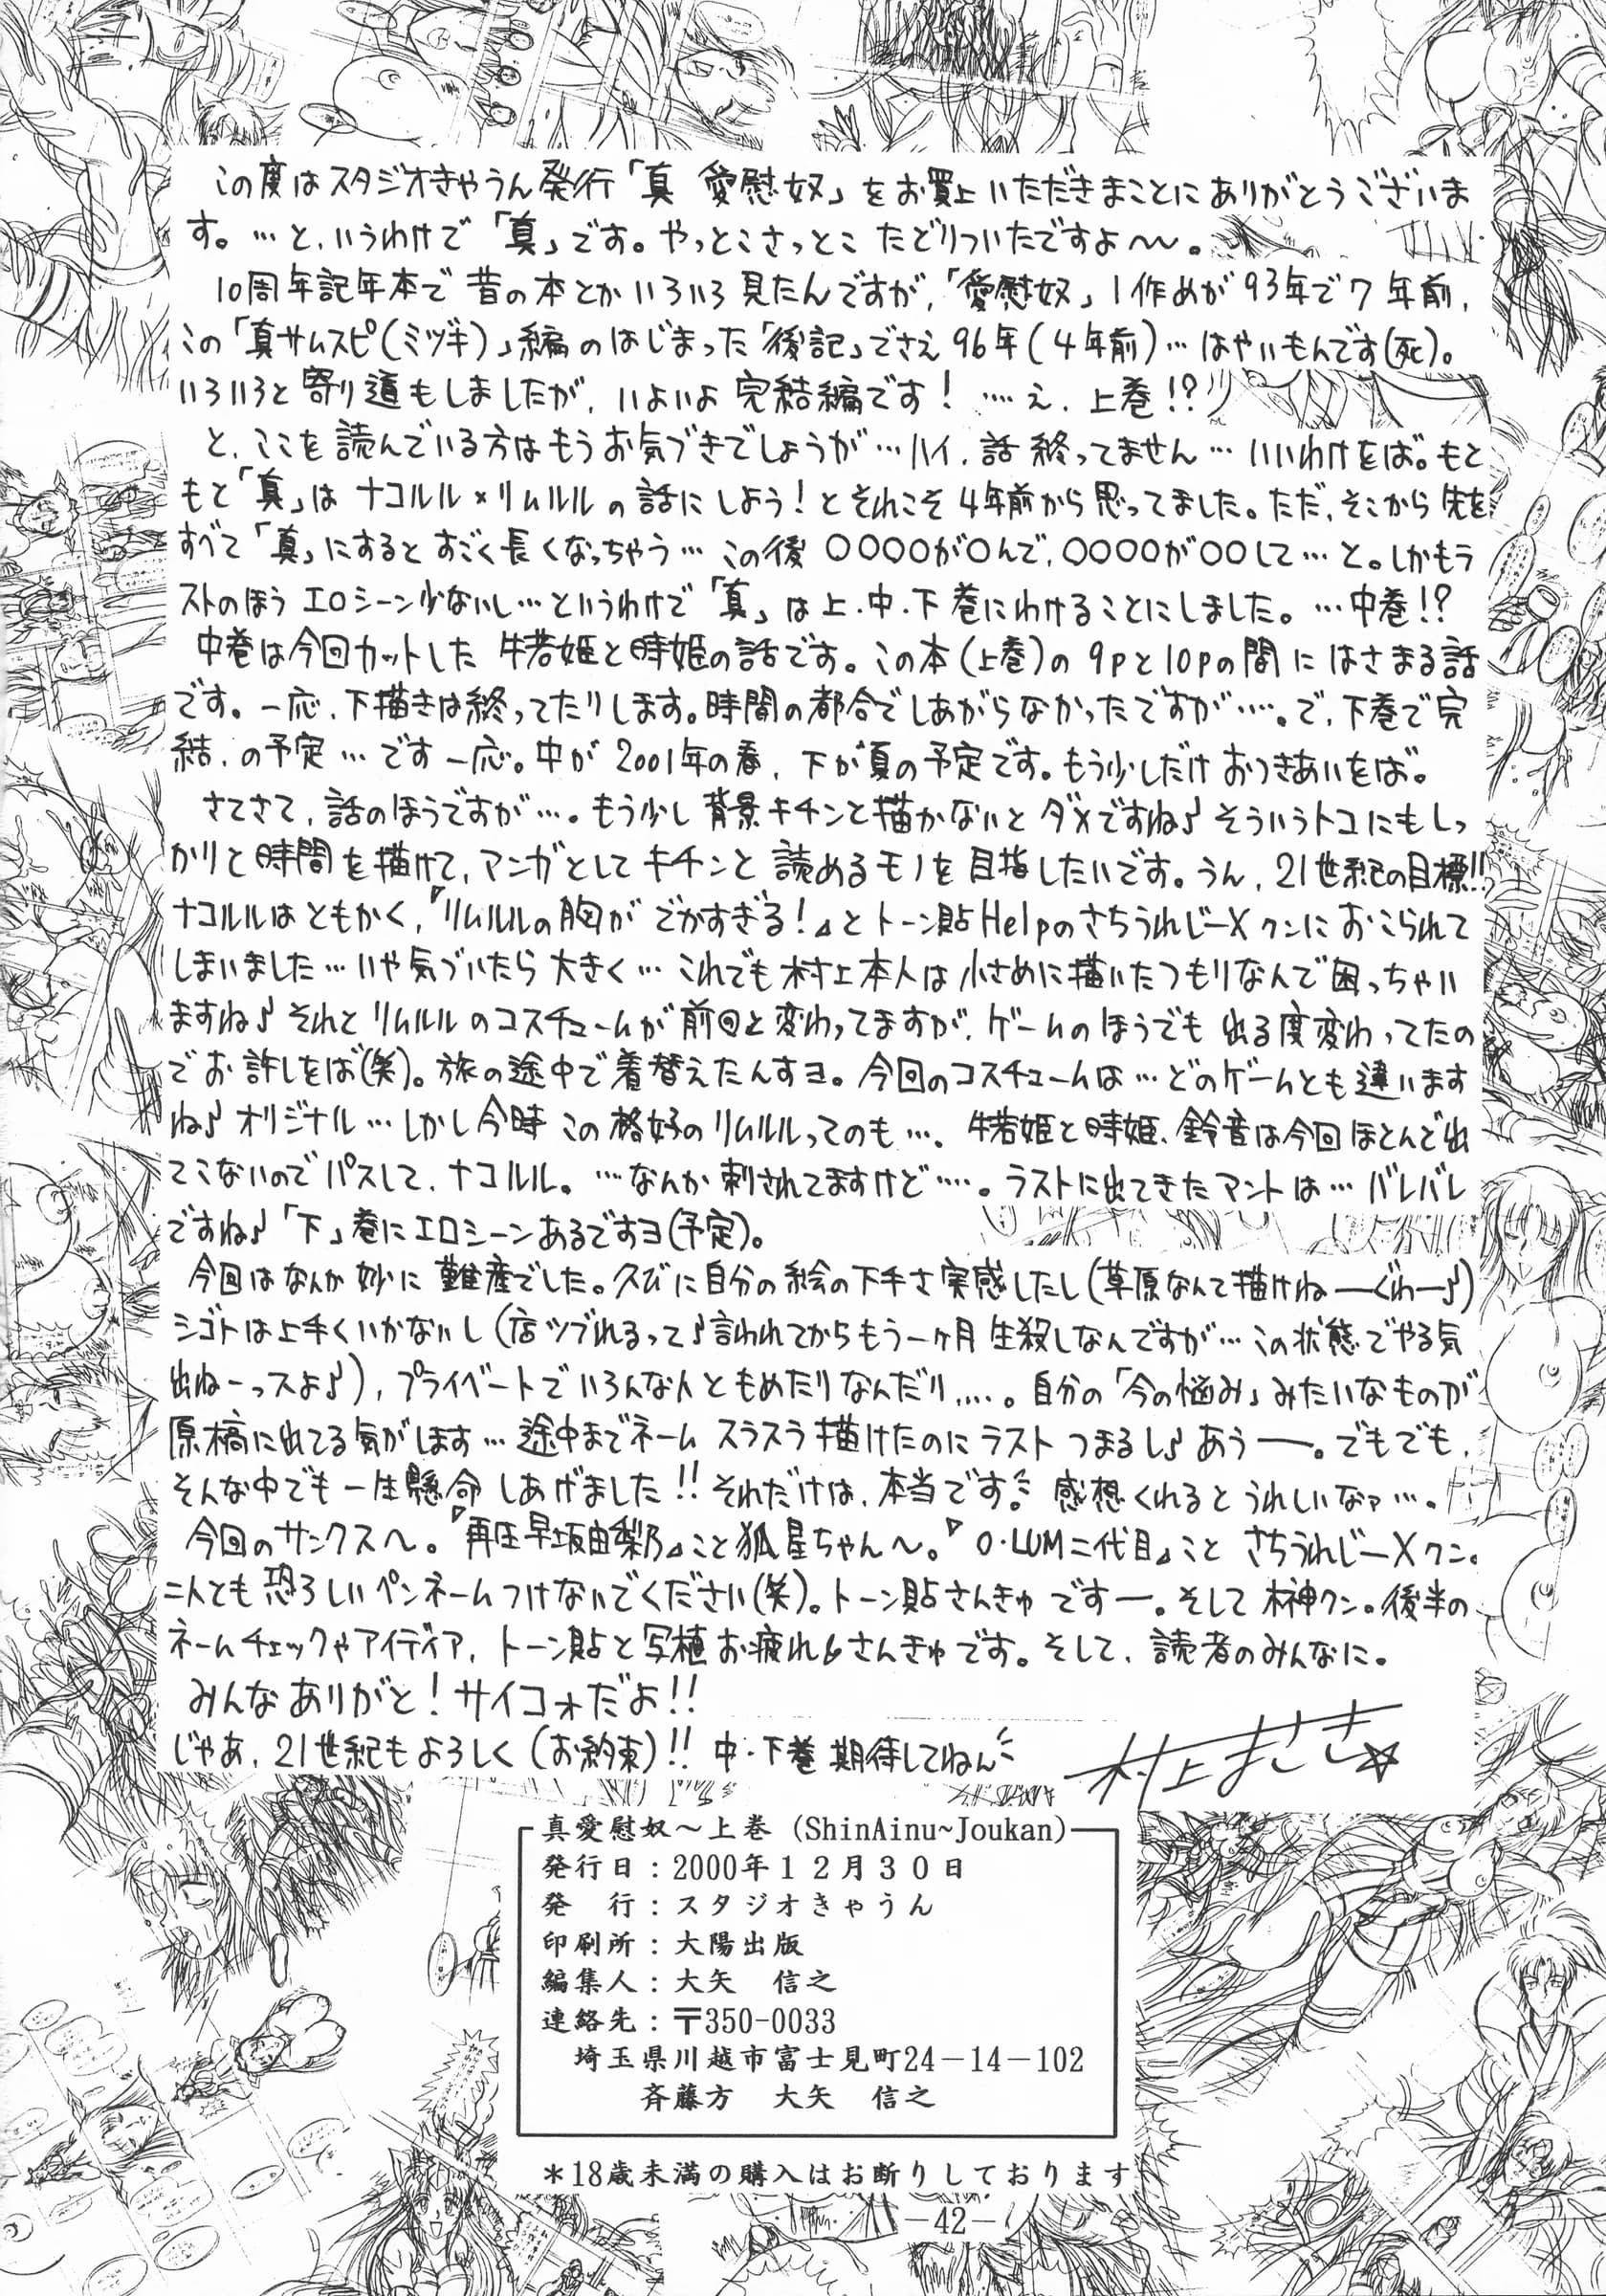 この度はスタジオきゃうん発行「真 愛慰奴」をお買上いただきまことにありがとうございま
す。…と、いうわけで「真」です。やっとこさっとこ たどりついたですよ〜〜。
10周年記年本で昔の本とかいろいろ見たんですが、「愛慰奴」1作めが93年で7年前、
この「真サムスピ(ミヅキ)」編のはじまった「後記」でさえ96年(4年前)…はやいもんです(死)。
いろいろと寄り道もしましたが、いよいよ完結編です!……え、上巻!?
と、ここを読んでいる方はもうお気づきでしょうが…ハイ、話終ってません…いいわけをば。もと
もと「真」はナコルル×リムルルの話にしよう!とそれこそ4年前から思ってました。ただ、そこから先を
すべて「真」にするとすごく長くなっちゃう…この後〇〇〇〇が〇んで、〇〇〇〇が〇〇して…と。しかもラ
ストのほうエロシーン少ないし…というわけで「真」は上・中・下巻にわけることにしました。…中巻!?
中巻は今回カットした 牛若姫と時姫の話です。この本(上巻)の9pと10pの間にはさまる話
です。一応、下描きは終ってたりします。時間の都合でしあがらなかったですが……。で、下巻で完
結、の予定…です一応。中が2001年の春、下が夏の予定です。もう少しだけおつきあいをば。
さてさて、話のほうですが…。もう少し背景キチンと描かないとダメですね♪そういうトコにもしっ
かりと時間を描けて、マンガとしてキチンと読めるモノを目指したいです。うん、21世紀の目標!!
ナコルルはともかく、『リムルルの胸がでかすぎる!』とトーン貼Helpのさちうれじーxクンにおこられて
しまいました…いや気づいたら大きく…これでも村上本人は小さめに描いたつもりなんで困っちゃい
ますね♪それとリムルルのコスチュームが前回と変わってますが、ゲームのほうでも出る度変わってたの
でお許しをば(笑)。旅の途中で着替えたんすヨ。今回のコスチュームは…どのゲームとも違います
ね♪オリジナル…しかし今時この格好のリムルルってのも…。牛若姫と時姫、鈴音は今回ほとんど出
てこないのでパスして、ナコルル。…なんか刺されてますけど……。ラストに出てきたマントは…バレバレ
ですね♪「下」巻にエロシーンあるですヨ(予定)。
今回はなんか妙に難産でした。久びに自分の絵の下手さ実感したし(草原なんて描けねーぐわー♪)
シゴトは上手くいかないし(店ツブれるって♪言われてからもう一ヶ月生殺しなんですが…この状態でやる気
出ねーっスよ♪)、プライベートでいろんな人ともめたりなんだり……。自分の「今の悩み」みたいなものが
原稿に出てる気がします…途中までネームスラスラ描けたのにラストつまるし♪あうー。でもでも、
そんな中でも一生懸命しあげました!!それだけは、本当です。感想くれるとうれしいなァ…。
今回のサンクスへ。『再生早坂由梨乃』こと狐星ちゃん〜。『O・LUM二代目』ことさちうれじーxクン。
二人とも恐ろしいペンネームつけないでください(笑)。トーン貼さんきゅですー。そして榊クン。後半の
ネームチェックやアイディア、トーン貼と写植お疲れ&さんきゅです。そして、読者のみんなに。
みんなありがと!サイコォだよ!!
じゃあ、21世紀もよろしく(お約束)!!中・下巻期待してねん
村上まさき☆
真愛慰奴〜上巻 (ShinAinu~Joukan)
発行日:2000年12月30日
発 行:スタジオきゃうん
印刷所:大陽出版
編集人:大矢 信之
連絡先:〒350-0033
埼玉県川越市富士見町24−14−102
斉藤方 大矢 信之
*18歳未満の購入はお断りしております
−42−